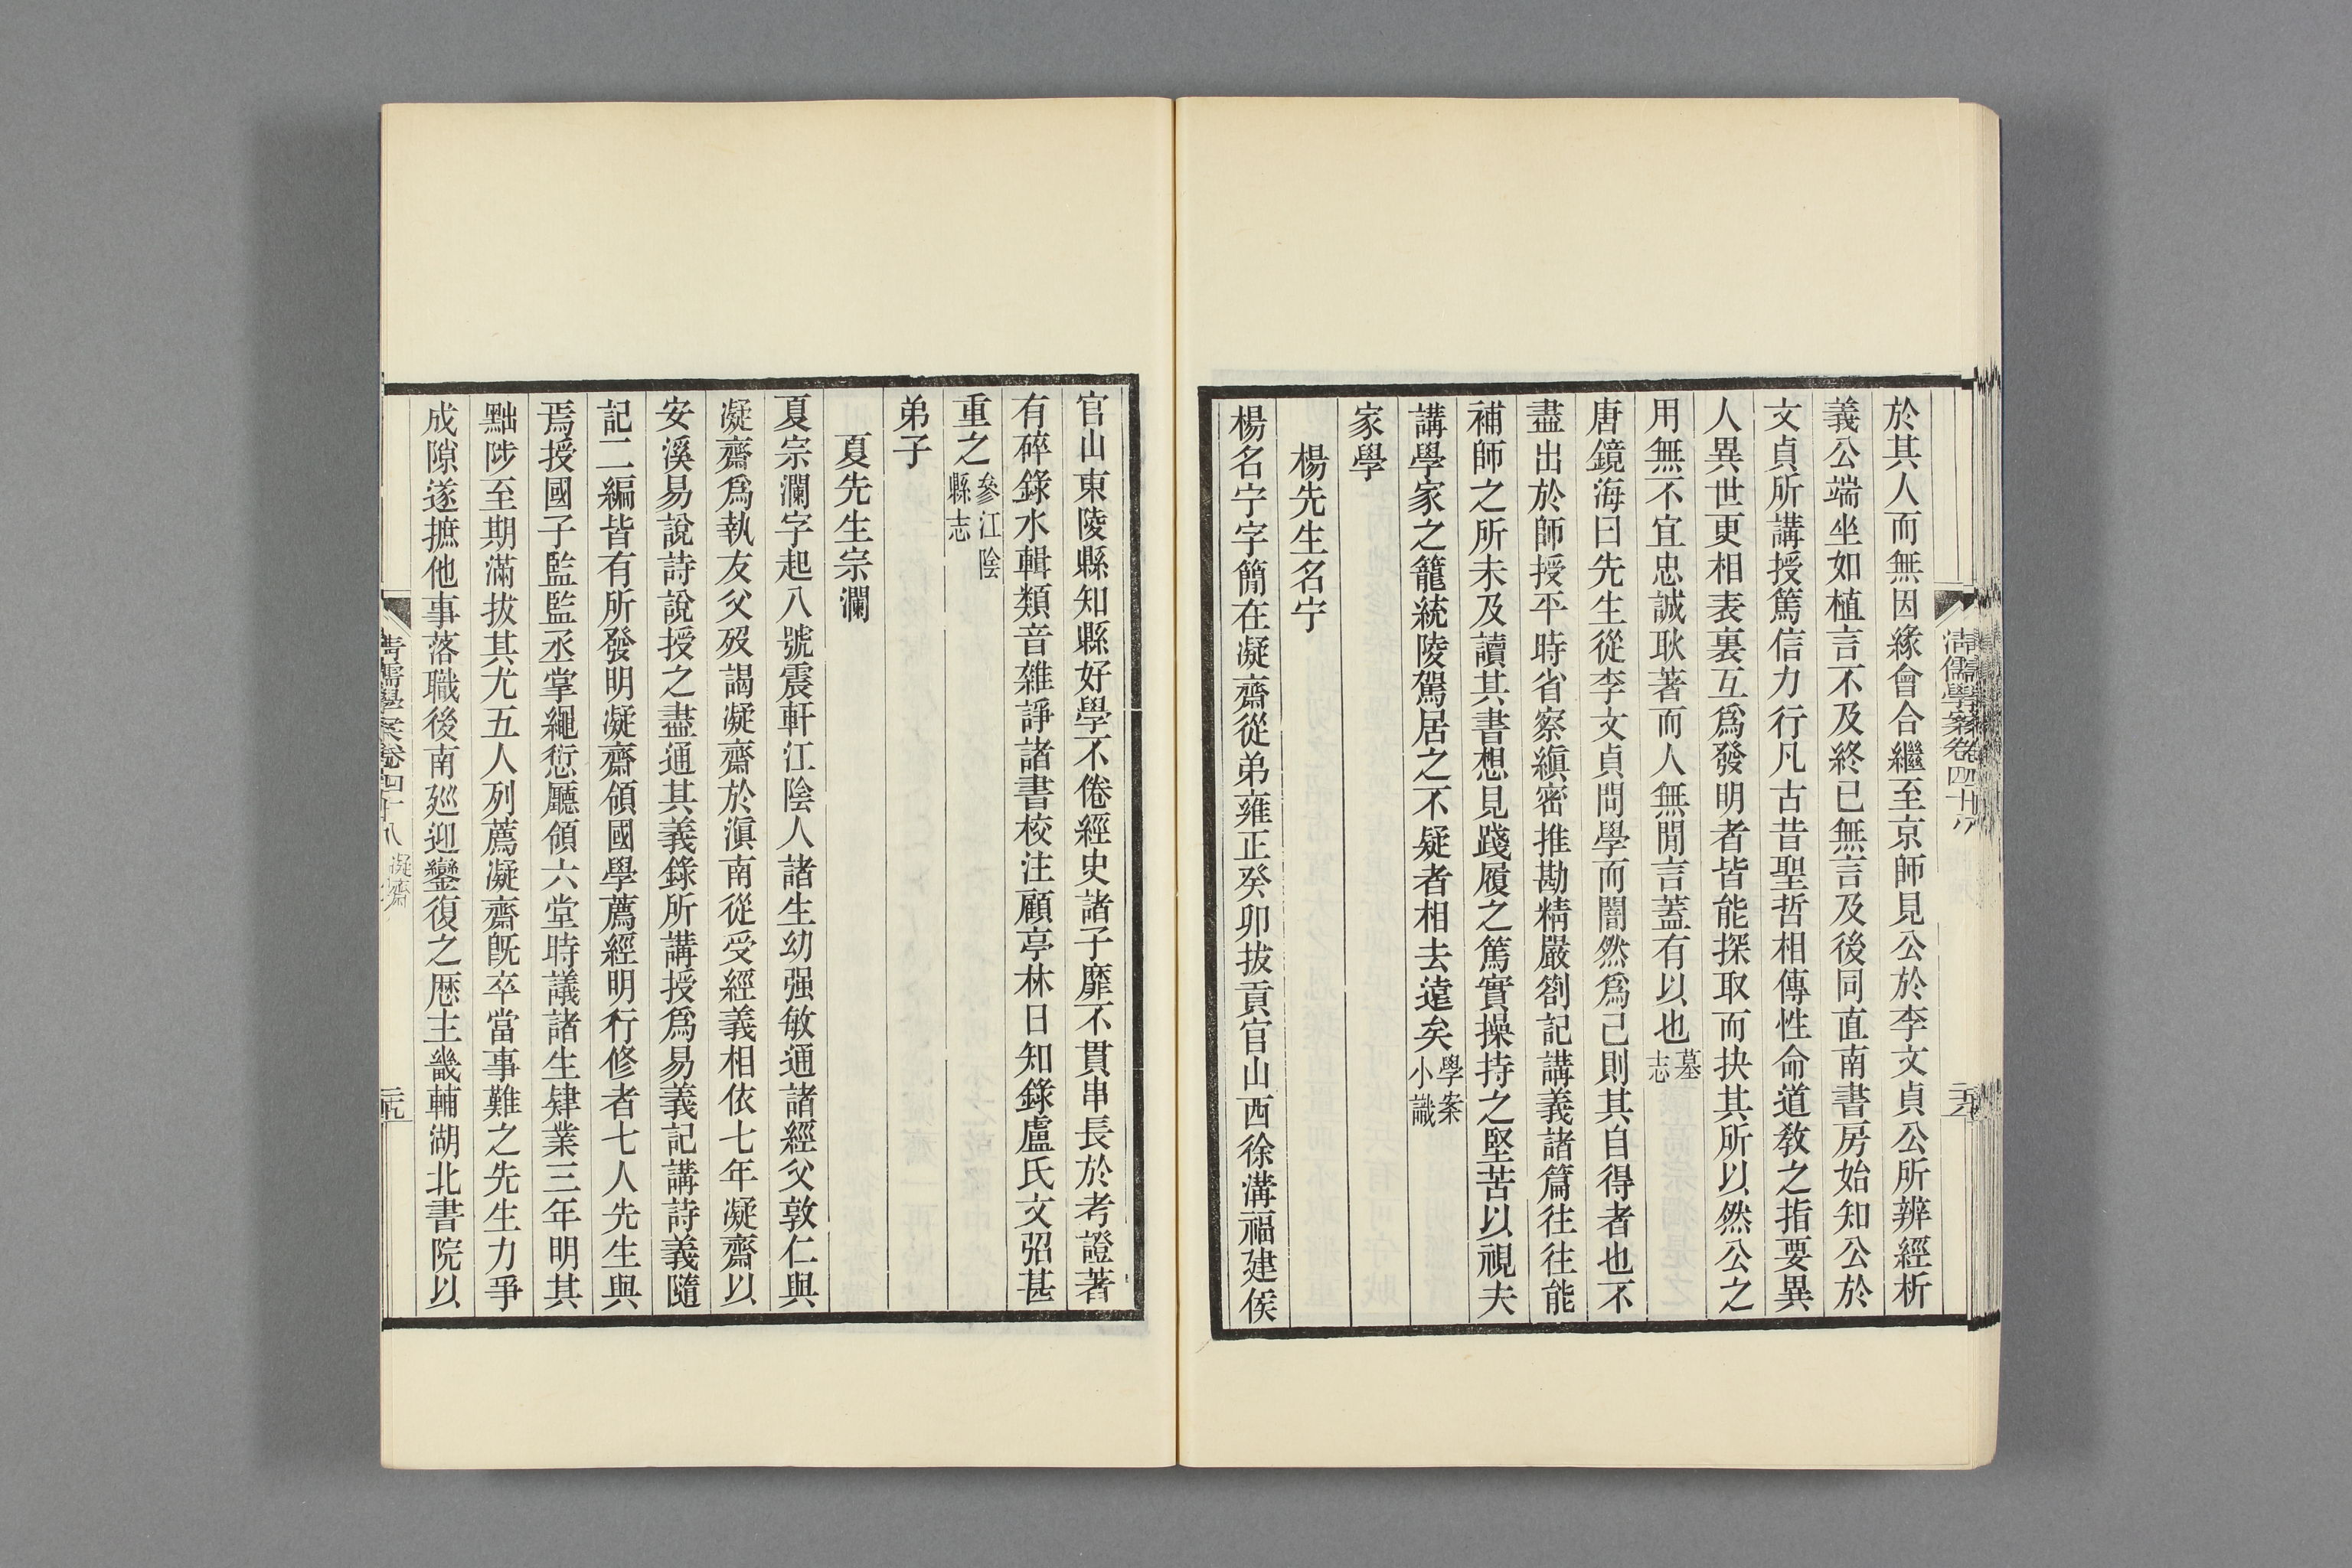 於其人而無因緣會合繼至京師見公於李文貞公所辨經析
義公端坐如植言不及終已無言及後同直南書房始知公於
文貞所講授篤信力行凡古昔聖哲相傳性命道敎之指要異
人異世更相表裏互爲發明者皆能探取而抉其所以然公之
用無不宜忠誠耿著而人無閒言蓋有以也墓志
唐鏡海曰先生從李文貞問學而闇然爲己則其自得者也不
盡出於師授平時省察縝密推勘精嚴劄記講義諸篇往往能
補師之所未及讀其書想見踐履之篤實操持之堅苦以視夫
講學家之籠統陵駕居之不疑者相去遠矣學案小識
家學
楊先生名宁
楊名宁字簡在凝齋從弟雍正癸卯拔貢官山西徐溝福建侯
官山東陵縣知縣好學不倦經史諸子靡不貫串長於考證著
有碎錄水輯類音雜諍諸書校注顧亭林日知錄盧氏文弨甚
重之參江陰縣志
弟子
夏先生宗瀾
夏宗瀾字起八號震軒江陰人諸生幼强敏通諸經父敦仁與
凝齋爲執友父歿謁凝齋於滇南從受經義相依七年凝齋以
安溪易說詩說授之盡通其義錄所講授爲易義記講詩義隨
記二編皆有所發明凝齋領國學薦經明行修者七人先生與
焉授國子監監丞掌繩愆廳領六堂時議諸生肄業三年明其
黜陟至期滿拔其尤五人列薦凝齋旣卒當事難之先生力爭
成隙遂摭他事落職後南廵迎鑾復之歷主畿輔湖北書院以
清儒學案卷四十八 凝齋